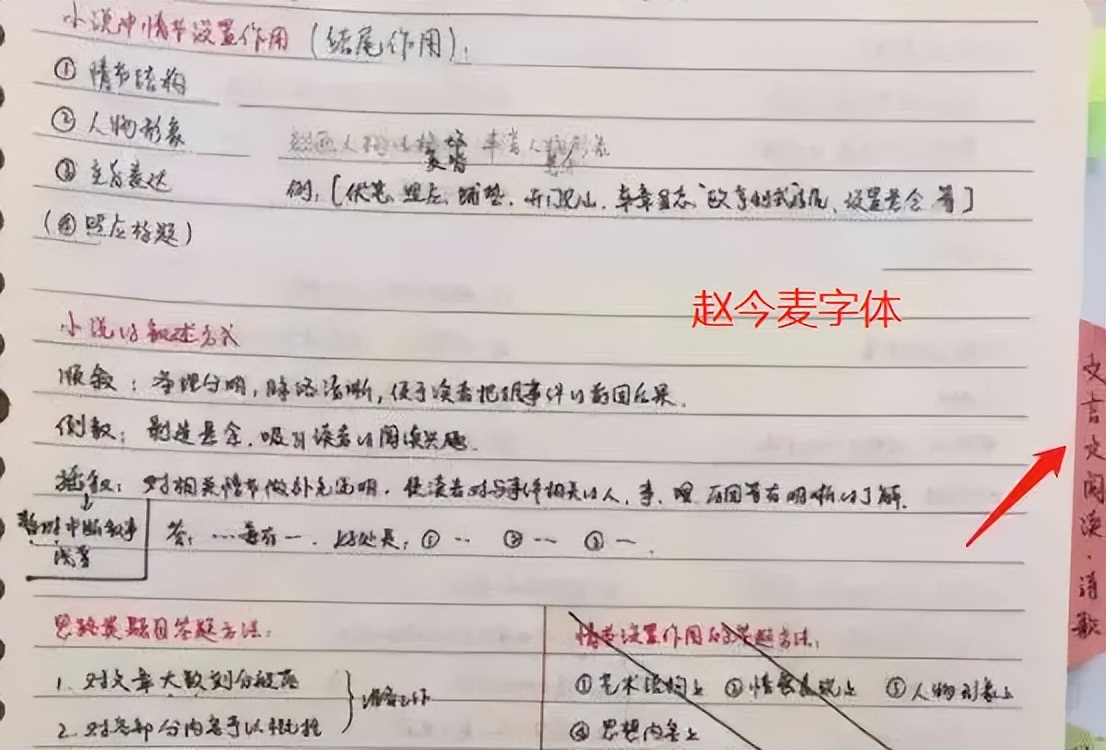 小说中情节设置作用(结尾作用):
① 情节结构
② 人物形象
③ 主旨表达
例:[伏笔、照应、铺垫、开门见山、卒章显志、设置悬念 等]
(④照应标题)
赵今麦字体
小说的叙述方式
顺叙:条理分明,脉络清晰,便于读者把握事件的前因后果。
倒叙:制造悬念,吸引读者的阅读兴趣.
插叙:对相关情节做补充说明,使读者对与事件相关的人、事、理、原因等有明晰的了解.
暂时中断叙事
答:…… 好处是:①… ②… ③…
思路类题目答题方法:
1. 对文章大致划分段落
2. 对各部分内容予以概括
情节设置作用的答题方法:
①艺术结构上 ②情感表现上 ③人物形象上
④思想内容上
文言文阅读·诗歌